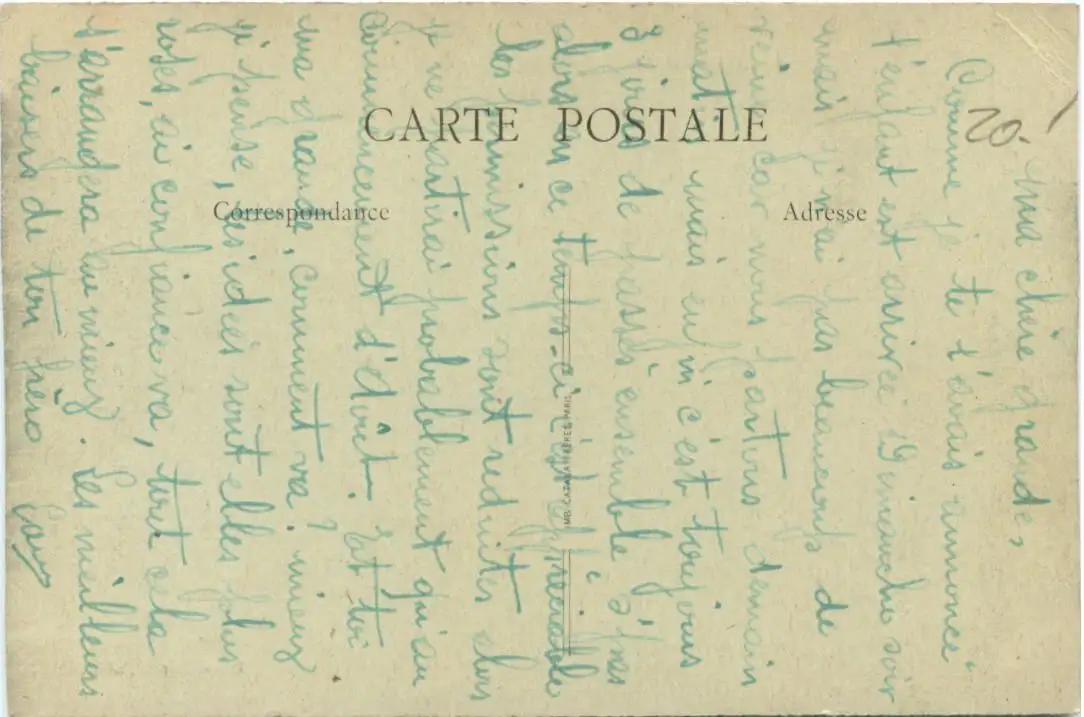 CARTE POSTALE
Correspondance
Adresse
20.-
Ma chère grande,
Comme je te l'avais annoncé
l'enfant est arrivé Dimanche soir
mais j'n'ai pas beaucoup de
veine car nous partons demain
matin mais enfin c'est toujours
3 jours de passés ensemble, pas
alors en ce temps-ci c'est appréciable
les permissions sont réduites alors
je ne partirai probablement qu'au
commencement d'Août. Et toi
ma grande, comment va ? mieux
j'pense, les idées sont elles plus
roses, ai confiance va, tout cela
s'arrangera au mieux. Les meilleurs
baisers de ton frère